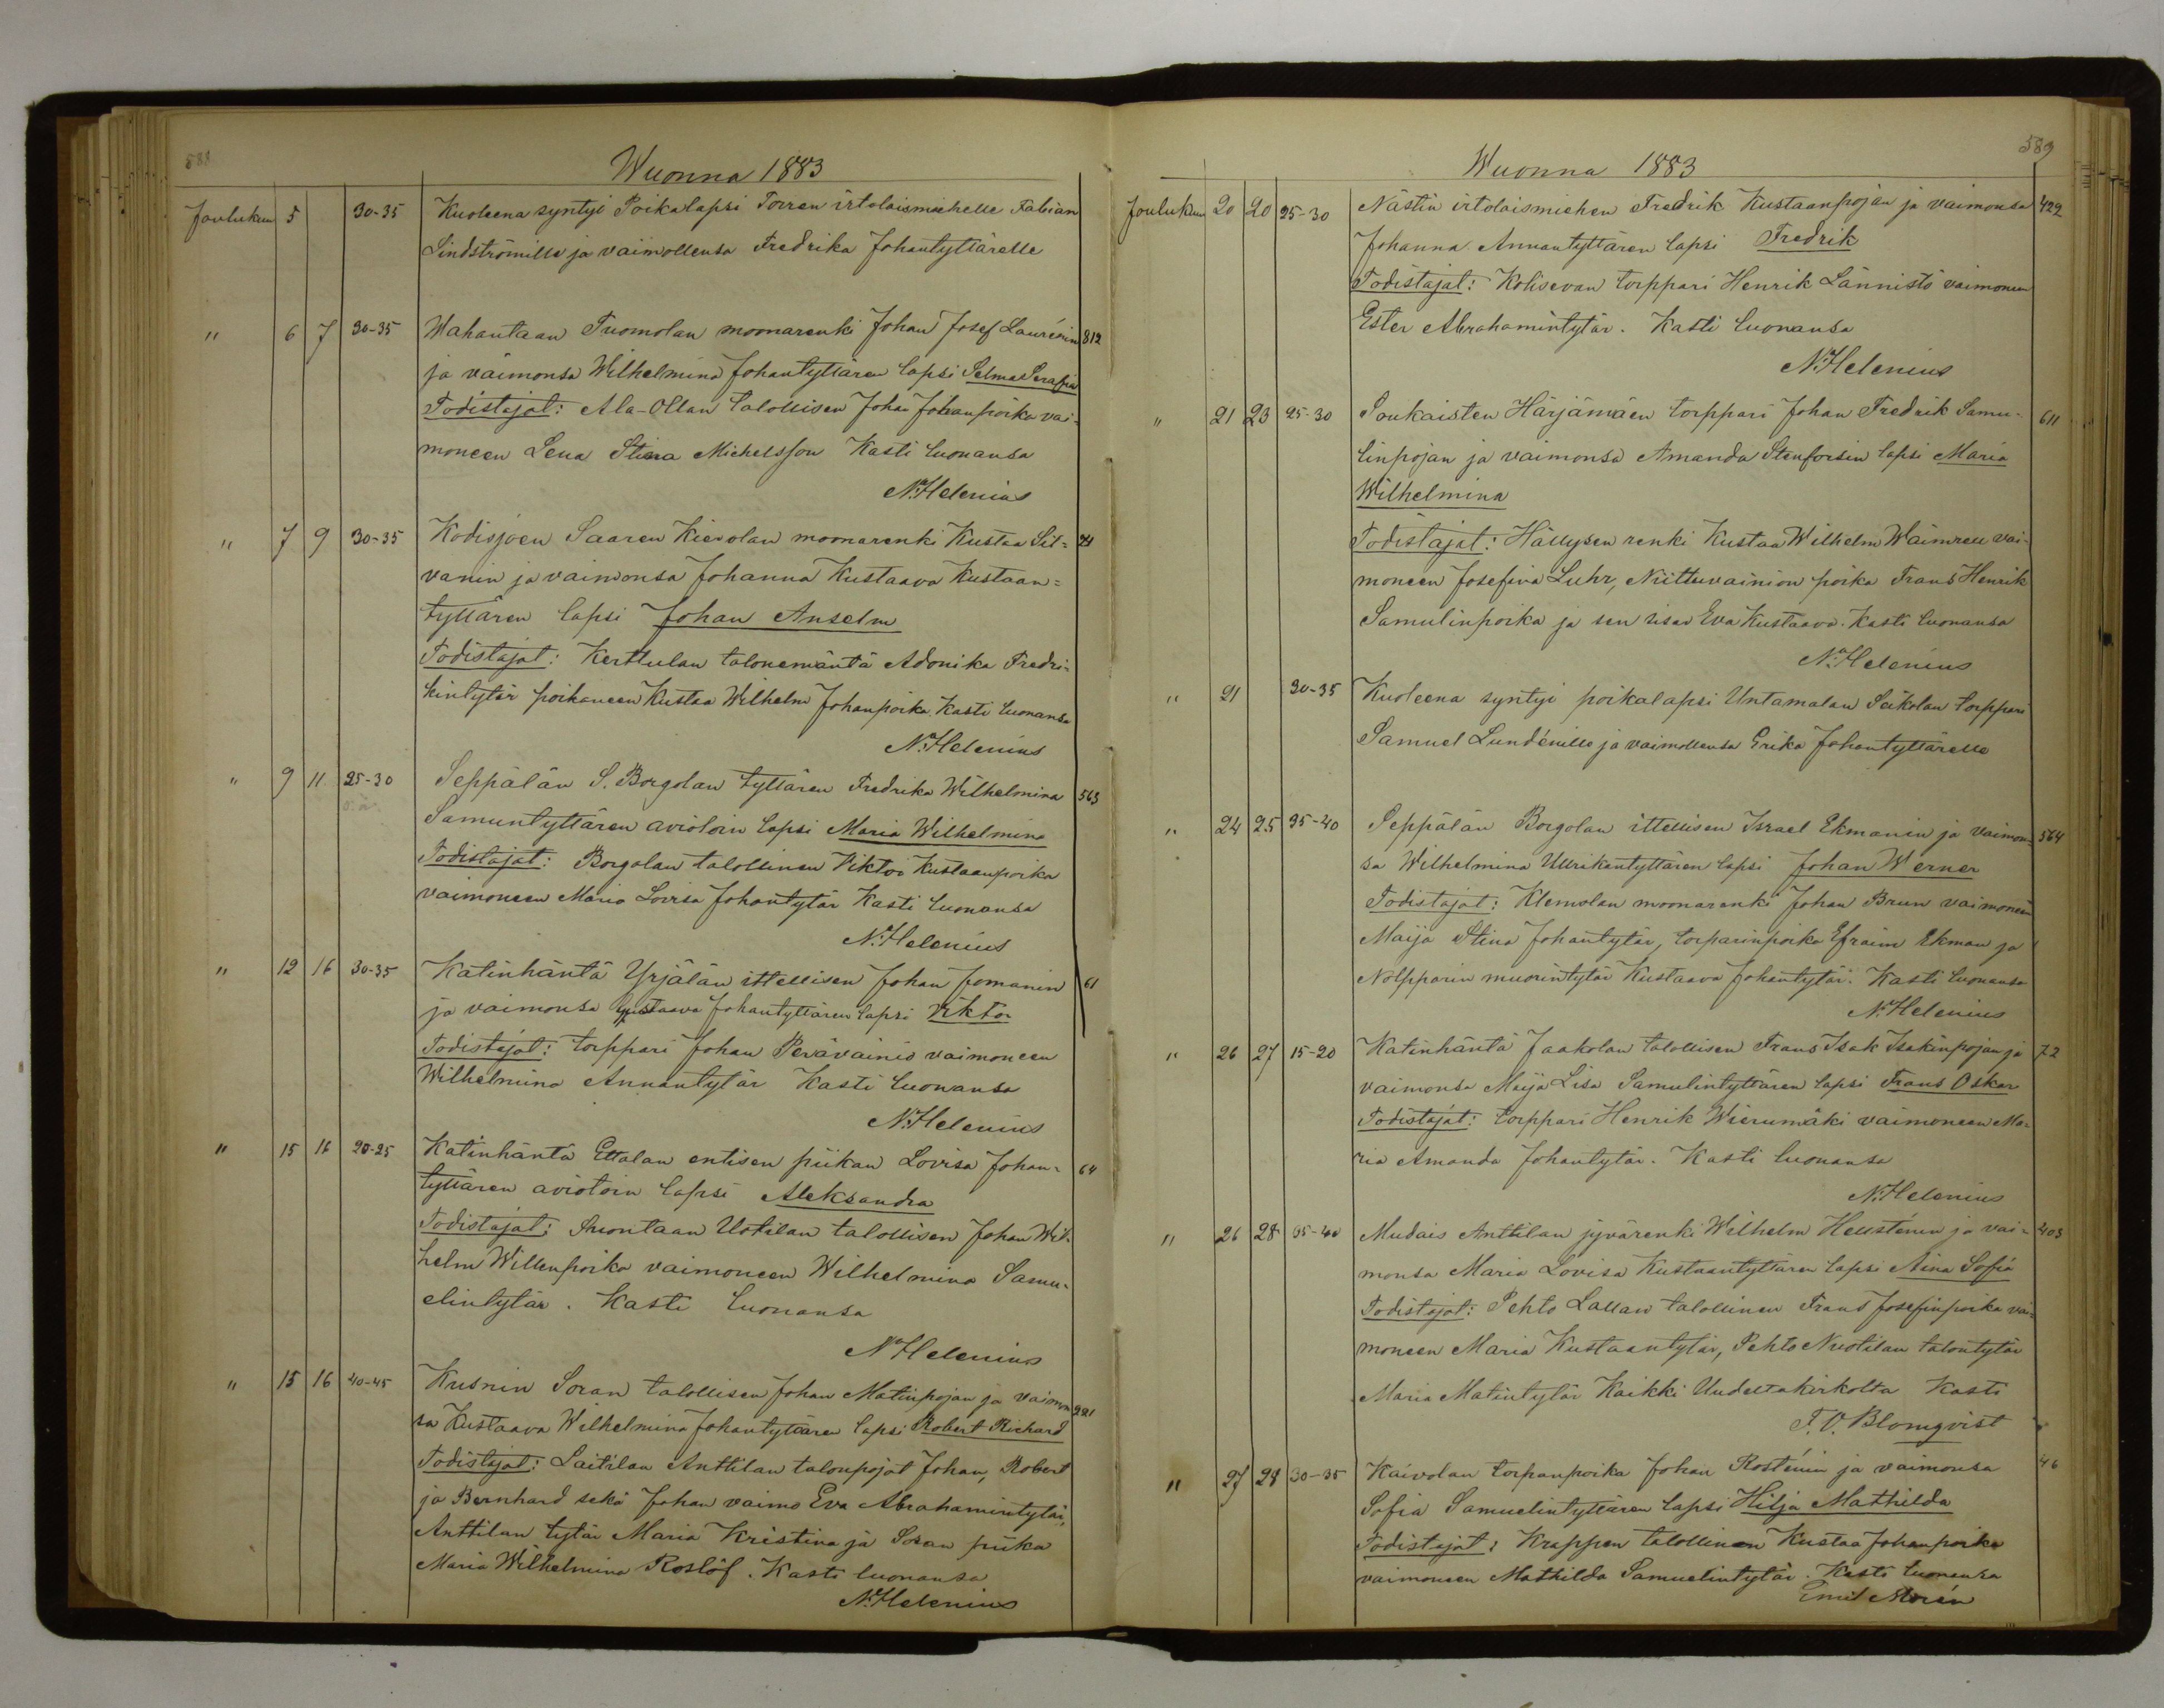 588
Wuonna 1883
Joulukun 5 30-35 Kuoleena syntyi Poikalapsi Torren irtolaismiehelle Fabian
Lindströmille ja vaimollensa Fredrika Johantyttärelle
" 6 7 30-35 Wahantaan Tuomolan moonarenki Johan Josef Laurénin 812
ja vaimonsa Wilhelmina Johantyttären lapsi Selma Serafia
Todistajat: Ala-Ollan talollisen Johan Johanpoika vai-
moneen Lena Stina Michelsson Kasti luonansa
N. Helenius
" 7 9 30-35 Kodisjoen Saaren Kierolan moonarenki Kustaa Sil=
vanin ja vaimonsa Johanna Kustaava Kustaan=
tyttären lapsi Johan Anselm
Todistajat: Kerttulan talonemäntä Adonika Fredri-
kintytär poikaneen Kustaa Wilhelm Johanpoika, Kasti luonansa
N. Helenius
" 9 11 25-30 Seppälän S. Borgolan tyttären Fredrika Wilhelmina 563
Samuntyttären aviotoin lapsi Maria Wilhelmina
Todistajat: Borgolan talollinen Viktor Kustaanpoika
vaimoneen Maria Lovisa Johantytär Kasti luonansa
N. Helenius
" 12 16 30-35 Katinhäntä Yrjälän ittellisen Johan Jomanin 61
ja vaimonsa Gustaava Johantyttären lapsi Viktor
Todistajat: torppari Johan Perävainio vaimoneen
Wilhelmina Annantytär Kasti luonansa
N. Helenius
" 15 16 20-25 Katinhäntä Ettalan entisen piikan Lovisa Johan- 64
tyttären aviotoin lapsi Aleksandra
Todistajat: Uotilan talollisen Johan Wil-
helm Willenpoika vaimoneen Wilhelmina Samu-
elintytär. Kasti luonansa
N. Helenius
" 15 16 40-45 Kusnin Soran talollisen Johan Matinpojan ja vaimon 221
sa Kustaava Wilhelmina Johantyttären lapsi Robert Richard
Todistajat: Laitilan Anttilan talonpojat Johan, Robert
ja Bernhard sekä Johan vaimo Eva Abrahamintytär,
Anttilan tytär Maria Kristina ja Soran piika
Maria Wilhelmina Roslöf. Kasti luonansa
N. Helenius
589
Wuonna 1883
Joulukun 20 20 25-30 Nästin irtolaismiehen Fredrik Kustaanpojan ja vaimonsa 422
Johanna Annantyttären lapsi Fredrik
Todistajat: Kolisevan torppari Henrik Lännistö vaimoneen
Ester Abrahamintytär. Kasti luonansa
N. Helenius
" 21 23 25-30 Soukaisten Härjämäen torppari Johan Fredrik Samu- 611
linpojan ja vaimonsa Amanda Stenforsin lapsi Maria
Wilhelmina
Todistajat: Hällysen renki Kustaa Wilhelm vai-
moneen Josefina Luhr, Niittuvainion poika Frans Henrik
Samulinpoika ja sen sisar Eva Kustaava. Kasti luonansa
N. Helenius
" 21 30-35 Kuoleena syntyi poikalapsi Untamalan Seikolan torppari
Samuel Lundénille ja vaimollensa Erika Johantyttärelle
" 24 25 35-40 Seppälän Borgolan ittellisen Israel Ekmanin ja vaimon- 564
sa Wilhelmina Ullrikantyttären lapsi Johan Werner
Todistajat: Klemolan moonarenki Johan Brun vaimoneen
Maija Stina Johantytär, torparinpoika Efraim Ekman ja
Nolpparin muorintytär Kustaava Johantytär. Kasti luonansa
N. Helenius
" 26 27 15-20 Katinhäntä Jaakolan talollisen Frans Isak Isakinpojan ja 72
vaimonsa Maija Lisa Samulintyttären lapsi Frans Oskar
Todistajat: torppari Henrik Wierumäki vaimoneen Ma-
ria Amanda Johantytär. Kasti luonansa
N. Helenius
" 26 28 35-40 Mudais Anttilan jyvärenki Wilhelm Hellsténin ja vai- 403
monsa Maria Lovisa Kustaantyttären lapsi Aina Sofia
Todistajat: Pehto Lallan talollinen Frans Josefinpoika vai-
moneen Maria Kustaantytär, Pehto Nuotilan talontytär
Maria Matintytär Kaikki Uudeltakirkolta Kasti
F. O. Blomqvist
" 27 28 30-35 Kaivolan torpanpoika Johan Rosténin ja vaimonsa 46
Sofia Samuelintyttären lapsi Hilja Mathilda
Todistajat: Krappen talollinen Kustaa Johanpoika
vaimoneen Mathilda Samuelintytär. Kasti luonansa
Emil Morén